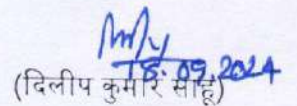 18.09.2024
(दिलीप कुमार साहू)